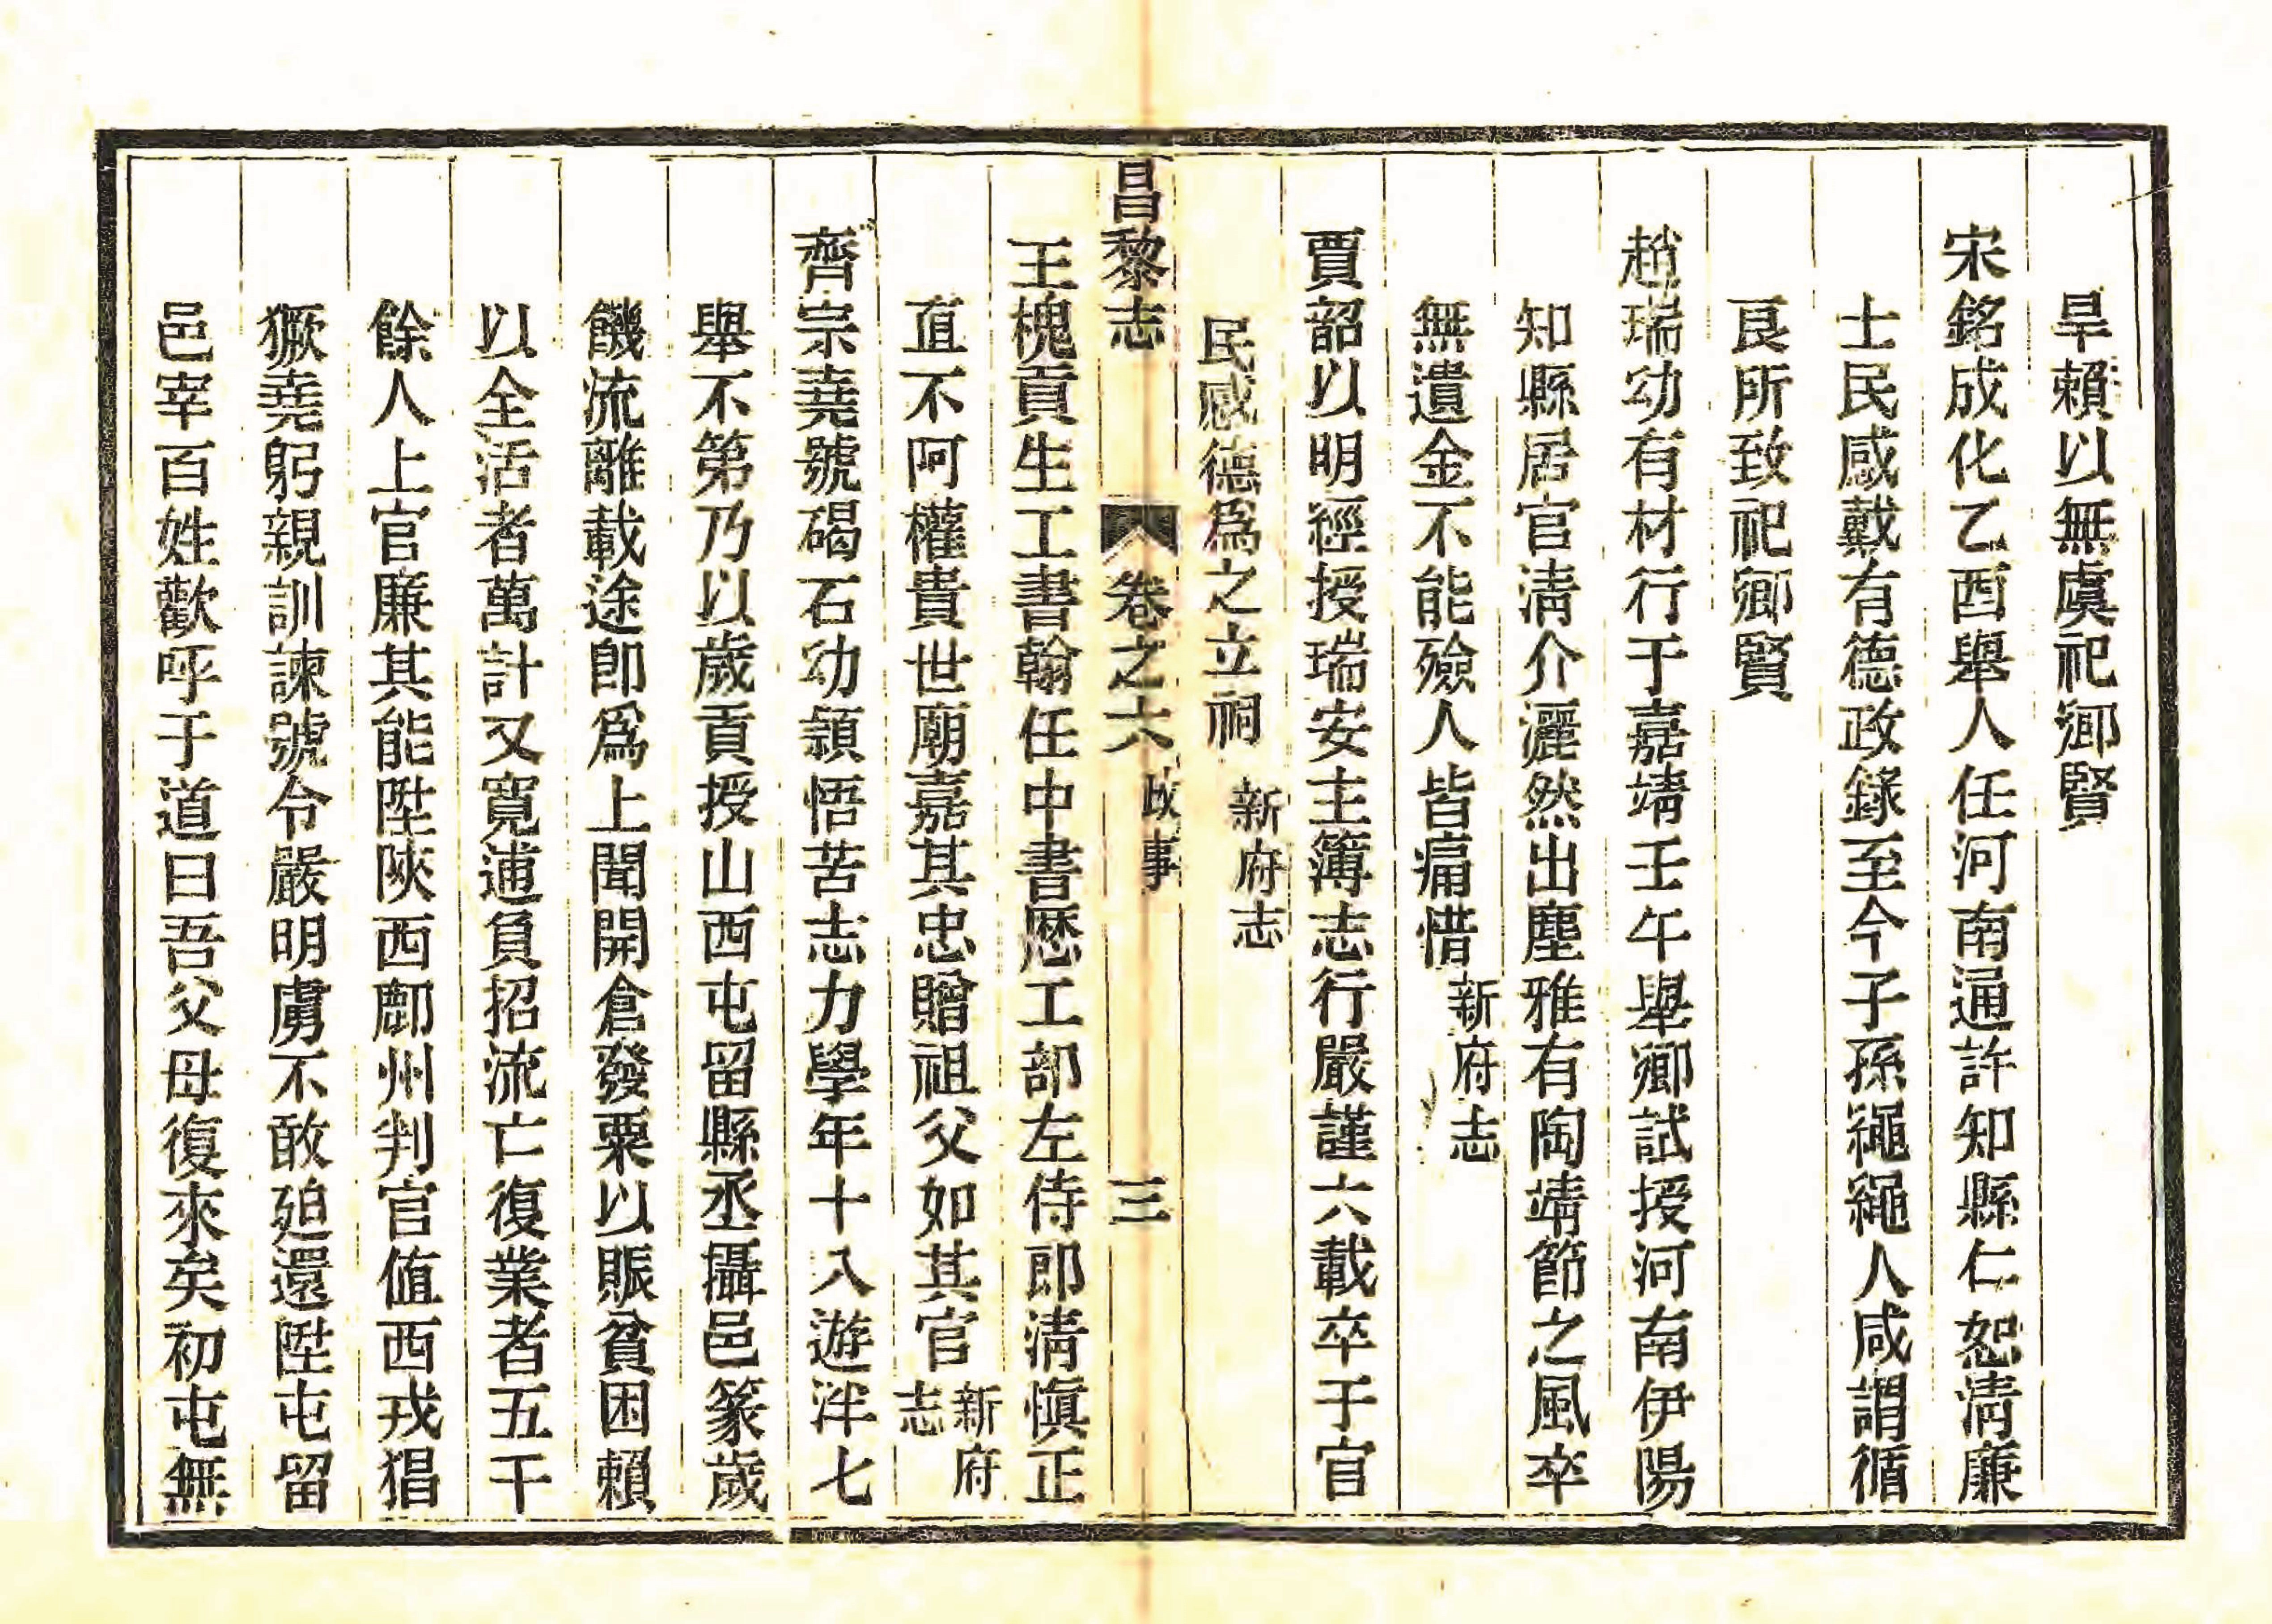 旱賴以無虞祀鄉賢
宋銘成化乙酉舉人任河南通許知縣仁恕淸廉
士民感戴有德政錄至今子孫繩繩人咸謂循
良所致祀鄉賢
趙瑞幼有材行于嘉靖壬午舉鄉試授河南伊陽
知縣居官淸介灑然出塵雅有陶靖節之風卒
無遺金不能殮人皆痛惜新府志
賈韶以明經授瑞安主簿志行嚴謹六載卒于官
民感德爲之立祠新府志
昌黎志 卷之六 故事 三
王槐貢生工書翰任中書歷工部左侍郎淸愼正
直不阿權貴世廟嘉其忠贈祖父如其官新府志
齊宗堯號碣石幼頴悟苦志力學年十八遊泮七
舉不第乃以歲貢授山西屯留縣丞攝邑篆歲
饑流離載途卽爲上聞開倉發粟以賑貧困賴
以全活者萬計又寬逋負招流亡復業者五千
餘人上官廉其能陞陝西鄜州判官值西戎猖
獗堯躬親訓諫號令嚴明虜不敢廹還陞屯留
邑宰百姓歡呼于道曰吾父母復來矣初屯無